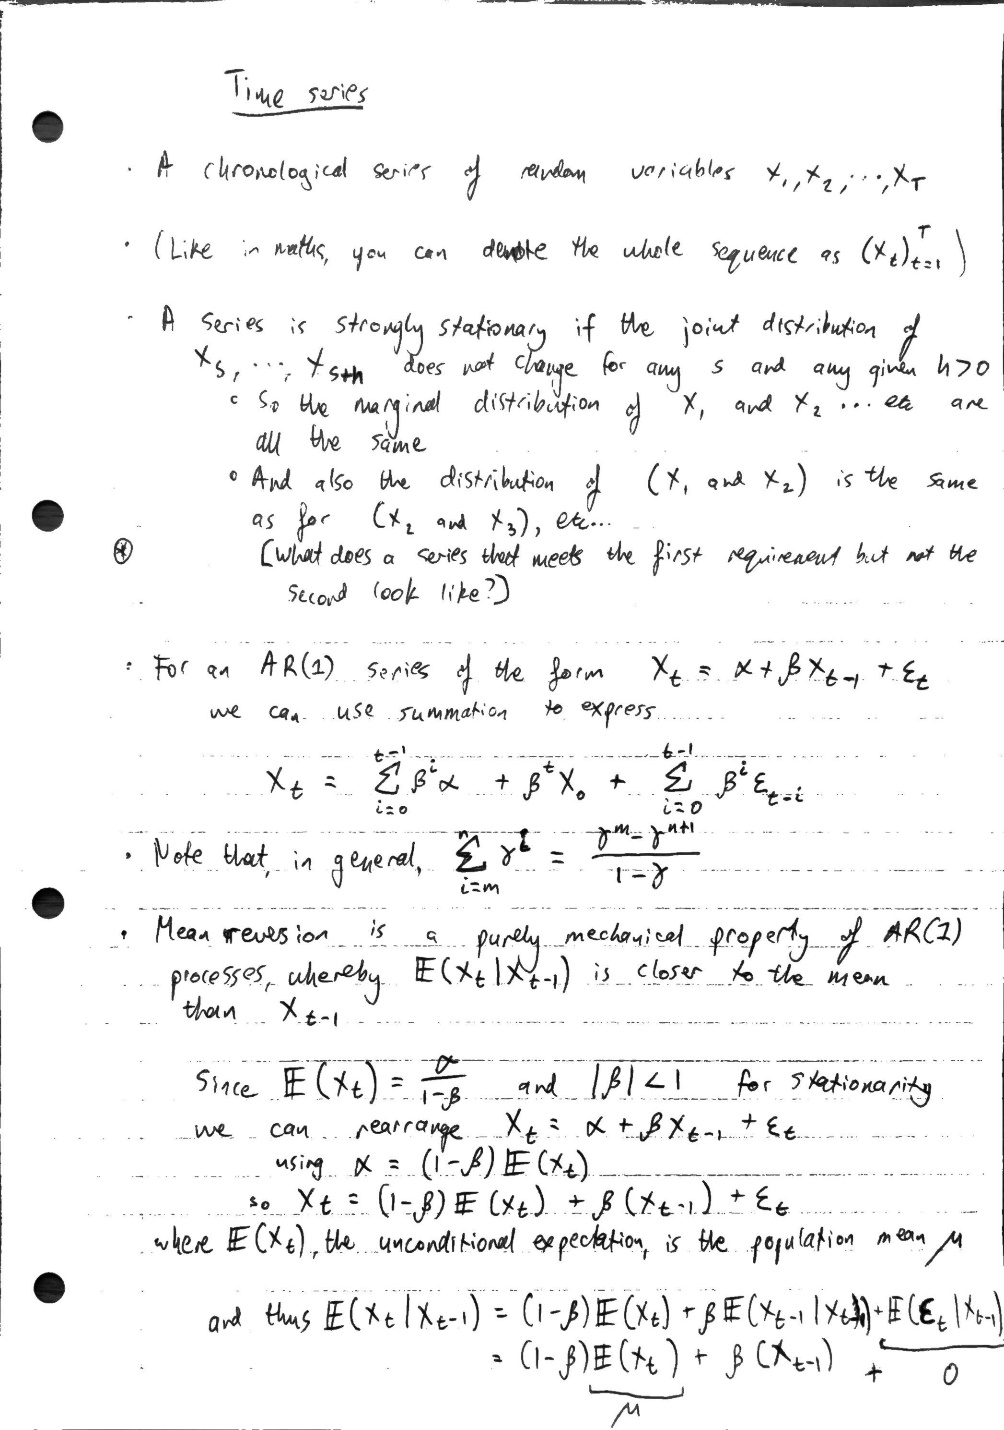 Time series
· A chronological series of random variables X₁, X₂, ..., X_T
· (Like in maths, you can denote the whole sequence as (X_t)_{t=1}^T)
· A series is strongly stationary if the joint distribution of
X_s, ..., X_{s+h} does not change for any s and any given h>0
∘ So the marginal distribution of X₁ and X₂ ... etc are
all the same
∘ And also the distribution of (X₁ and X₂) is the same
as for (X₂ and X₃), etc...
⊛ [What does a series that meets the first requirement but not the
second look like?]
· For an AR(1) series of the form X_t = α + βX_{t-1} + ε_t
we can use summation to express
X_t = Σ_{i=0}^{t-1} β^i α + β^t X_0 + Σ_{i=0}^{t-1} β^i ε_{t-i}
· Note that, in general, Σ_{i=m}^{n} γ^i = (γ^m - γ^{n+1})/(1-γ)
· Mean reversion is a purely mechanical property of AR(1)
processes, whereby 𝔼(X_t|X_{t-1}) is closer to the mean
than X_{t-1}
Since 𝔼(X_t) = α/(1-β) and |β|<1 for stationarity
we can rearrange X_t = α + βX_{t-1} + ε_t
using α = (1-β)𝔼(X_t)
so X_t = (1-β)𝔼(X_t) + β(X_{t-1}) + ε_t
where 𝔼(X_t), the unconditional expectation, is the population mean μ
and thus 𝔼(X_t|X_{t-1}) = (1-β)𝔼(X_t) + β𝔼(X_{t-1}|X_{t-1}) + 𝔼(ε_t|X_{t-1})
= (1-β)𝔼(X_t) + β(X_{t-1}) + 0
μ